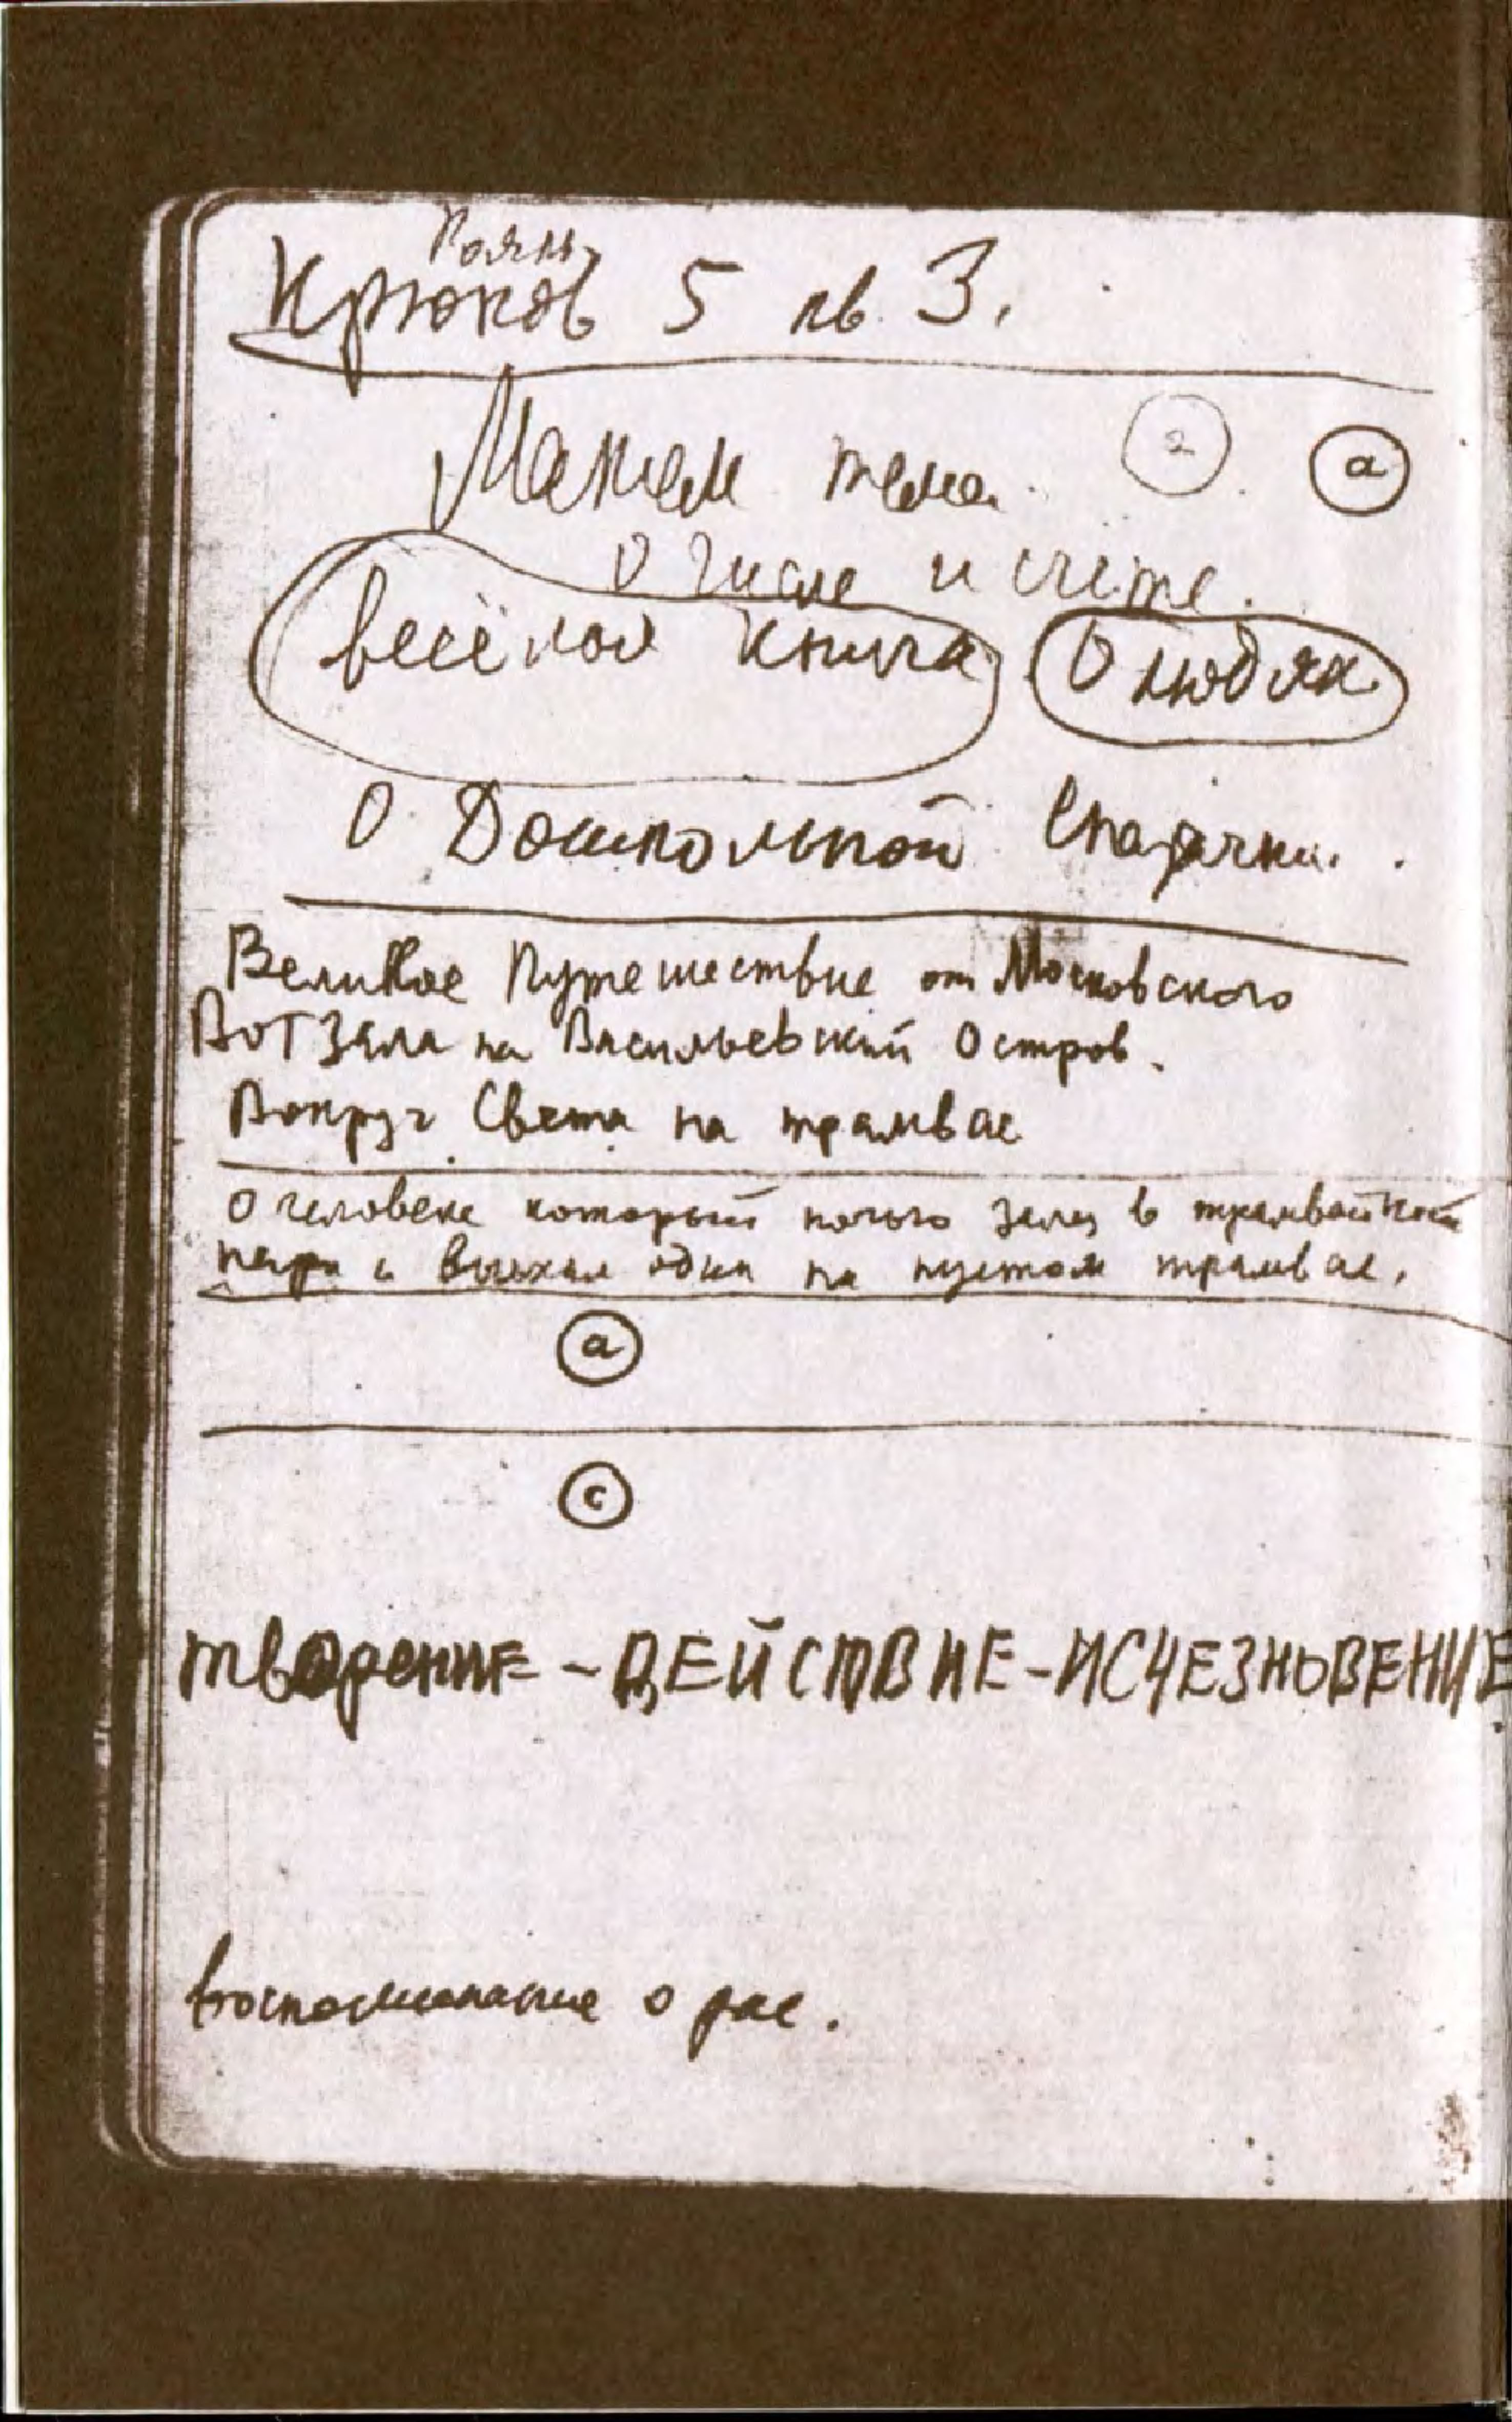 Крюков 5 кв. 3.
2 а
о числе и счёте.
весёлая книга О людях
О Дошкольной
Великое Путешествие от Московского
Вотзала на Васильевский Остров.
Вокруг Света на трамвае
О человеке который ночью залез в трамвайной
парк и выехал один на пустом трамвае.
а
с
творение - ДЕЙСТВИЕ - ИСЧЕЗНОВЕНИЕ
воспоминание о рае.